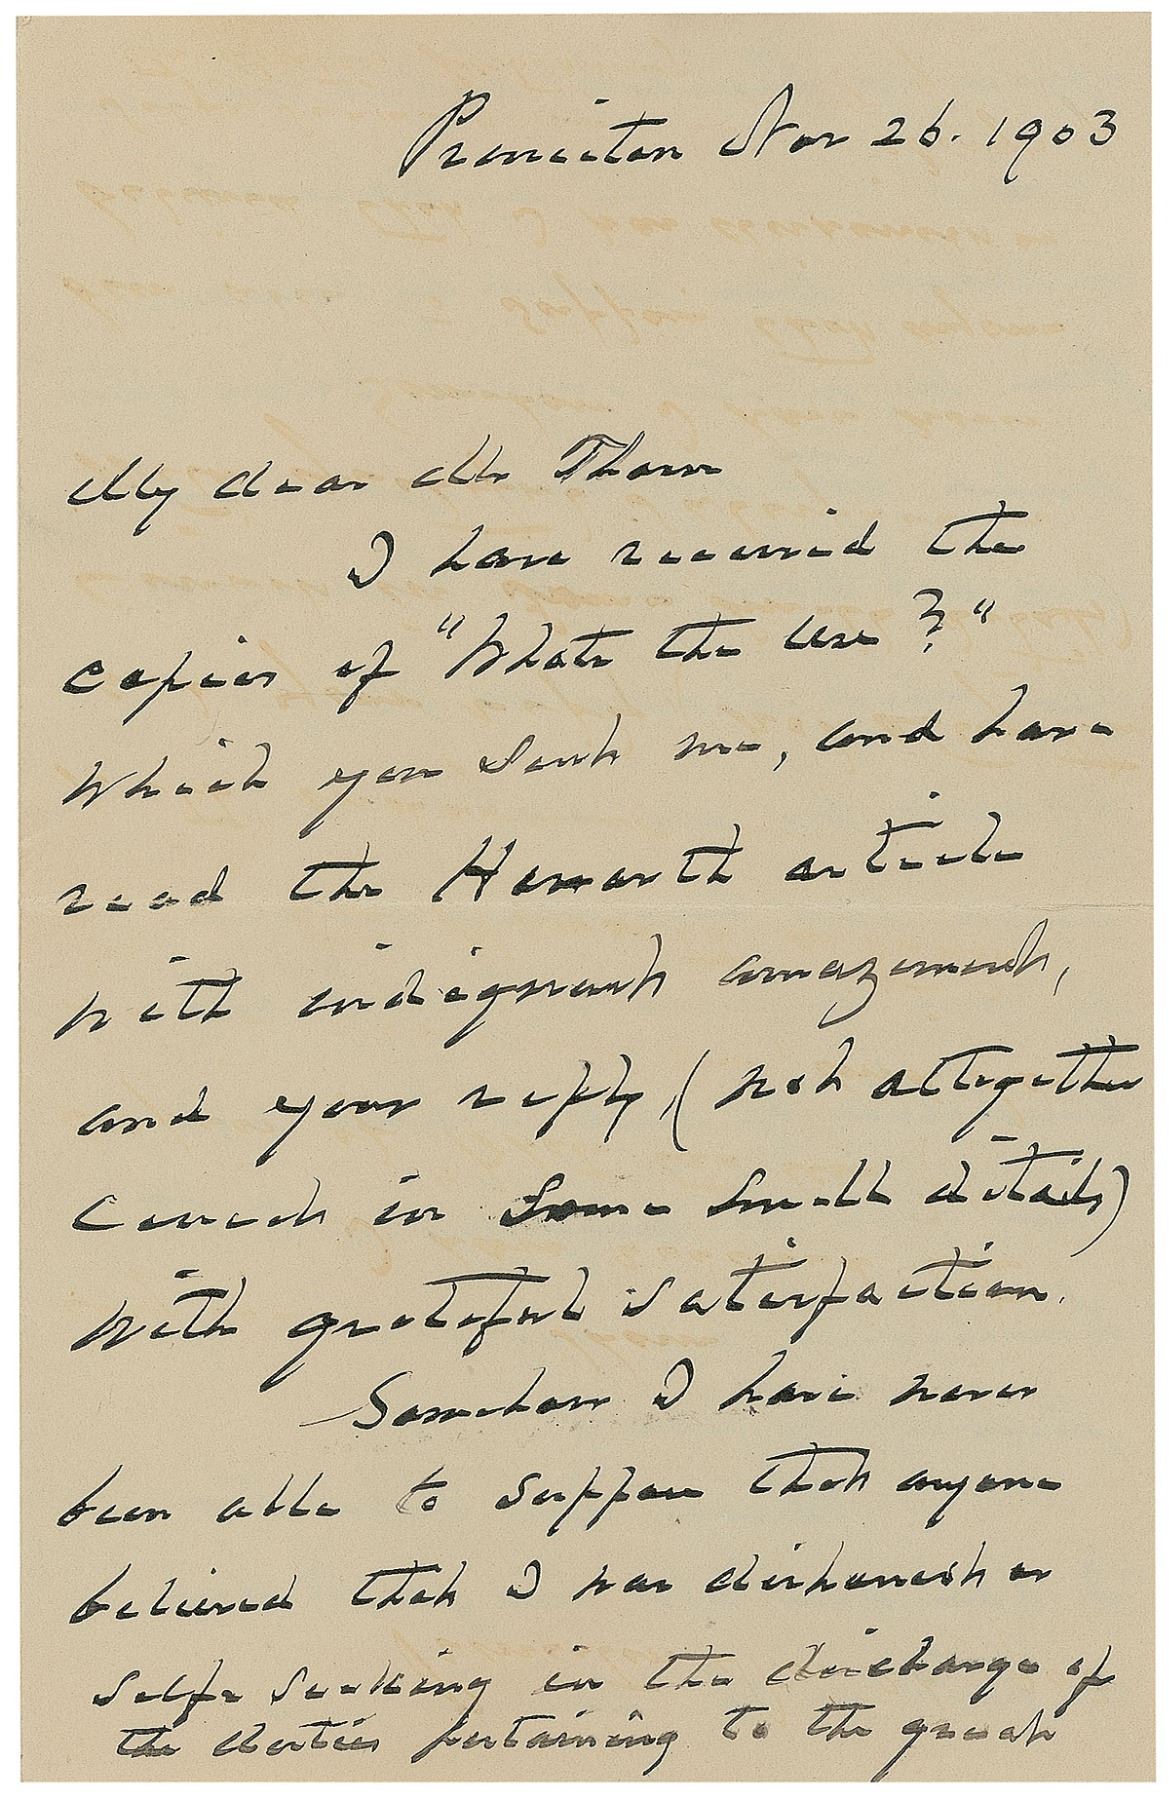 Princeton Nov 26. 1903
My dear Mr Thorn
I have received the
copies of "Whats the Use?"
which you sent me, and have
read the Haworth article
with indignant amazement,
and your reply, (not altogether
correct in some small details)
with grateful satisfaction.
Somehow I have never
been able to suppose that anyone
believed that I was dishonest or
self-seeking in the discharge of
the duties pertaining to the great